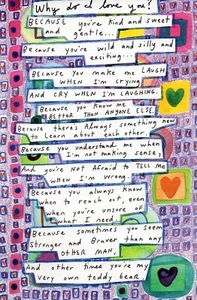 Why do I love you?
BECAUSE you're kind and sweet
and gentle...
Because you're wild and silly and
exciting...
Because you make me LAUGH
WHEN I'M CRYING
AND CRY WHEN I'M LAUGHING.
Because you know me
BETTER THAN ANYONE ELSE
Because there's Always something new
to learn about each other.
Because you understand me when
I'm not making sense
And you're Not Afraid to TELL me
when I'm wrong.
Because you always know
when to reach out, even
when you're unsure of
what I need.
Because sometimes you seem
Stronger and Braver than any
OTHER MAN,
And other times you're my
very own teddy bear.